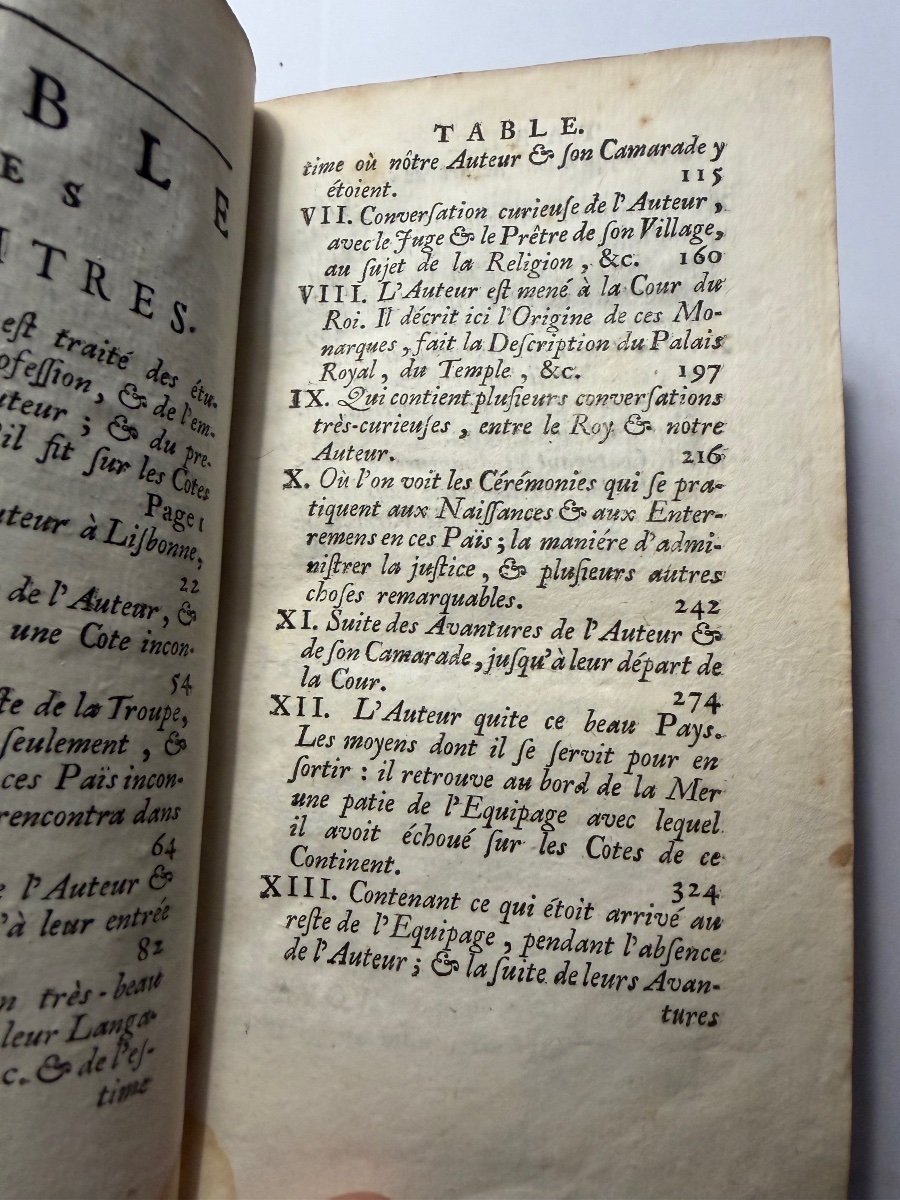 B L E
E S
ITRES.
est traité des étu-
ofeſſion, & de l'em-
uteur ; & du pre-
'il fit ſur les Côtes
Page 1
uteur à Liſbonne,
22
de l'Auteur, &
une Cote incon-
54
te de la Troupe,
ſeulement, &
ces Païs incon-
rencontra dans
64
l'Auteur &
'à leur entrée
82
n très-beau
leur Langa-
c. & de l'eſ-
time
TABLE.
time où nôtre Auteur & ſon Camarade y
étoient. 115
VII. Converſation curieuſe de l'Auteur,
avec le Juge & le Prêtre de ſon Village,
au ſujet de la Religion, &c. 160
VIII. L'Auteur eſt mené à la Cour du
Roi. Il décrit ici l'Origine de ces Mo-
narques, fait la Deſcription du Palais
Royal, du Temple, &c. 197
IX. Qui contient pluſieurs converſations
très-curieuſes, entre le Roy & notre
Auteur. 216
X. Où l'on voit les Cérémonies qui ſe pra-
tiquent aux Naiſſances & aux Enter-
remens en ces Païs ; la maniére d'admi-
niſtrer la juſtice, & pluſieurs autres
choſes remarquables. 242
XI. Suite des Avantures de l'Auteur &
de ſon Camarade, juſqu'à leur départ de
la Cour. 274
XII. L'Auteur quite ce beau Pays.
Les moyens dont il ſe ſervit pour en
ſortir : il retrouve au bord de la Mer
une patie de l'Equipage avec lequel
il avoit échoué ſur les Cotes de ce
Continent. 324
XIII. Contenant ce qui étoit arrivé au
reſte de l'Equipage, pendant l'abſence
de l'Auteur ; & la ſuite de leurs Avan-
tures